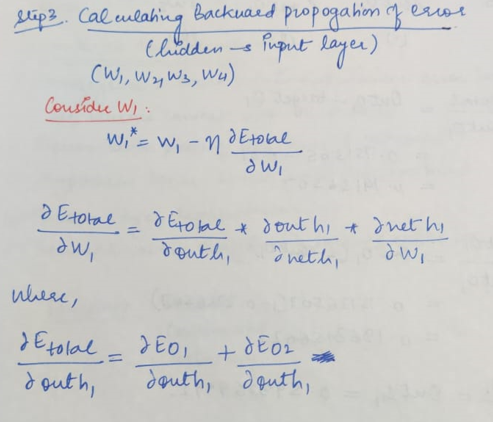 Step3. Calculating Backward propogation of error
(hidden → input layer)
(W1, W2, W3, W4)
Consider W1:
W1* = W1 - η ∂Etotal/∂W1
∂Etotal/∂W1 = ∂Etotal/∂outh1 * ∂outh1/∂neth1 * ∂neth1/∂W1
where,
∂Etotal/∂outh1 = ∂EO1/∂outh1 + ∂EO2/∂outh1